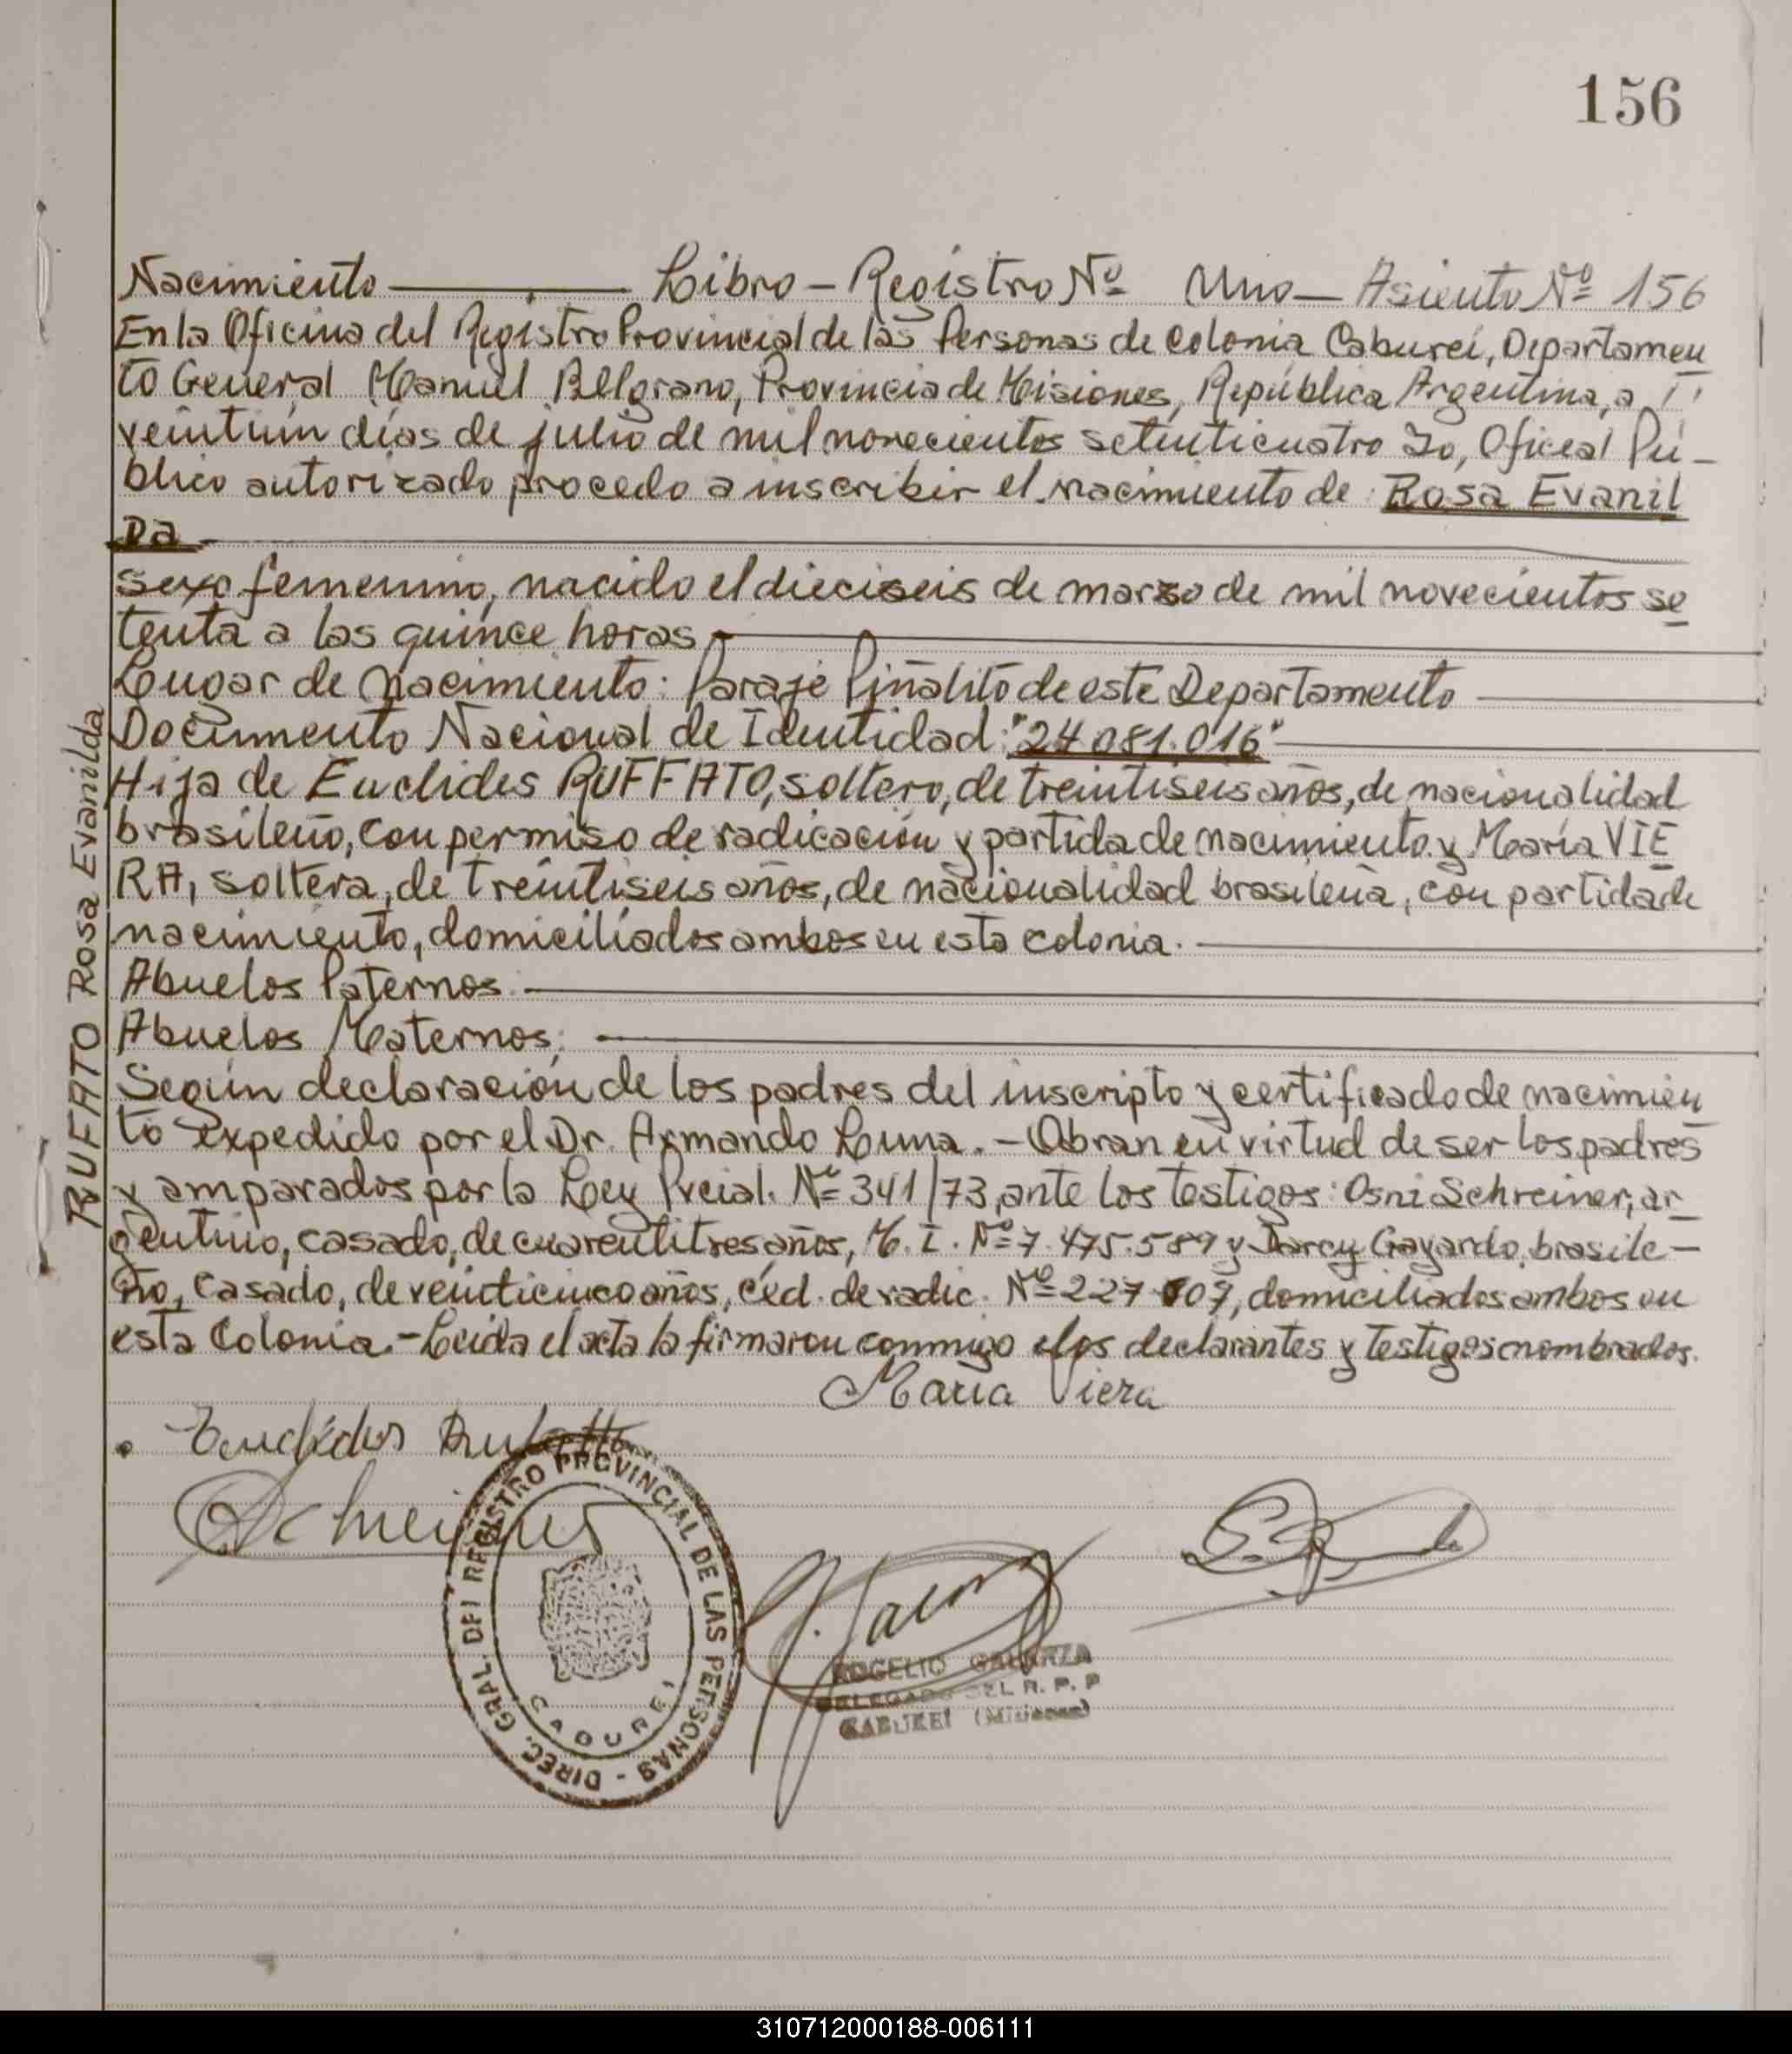 156
Nacimiento Libro - Registro Nº Uno - Asiento Nº 156
En la Oficina del Registro Provincial de las Personas de Colonia Caburei, Departamen
to General Manuel Belgrano, Provincia de Misiones, República Argentina, a
veintiún días de julio de mil novecientos setenticuatro Yo, Oficial Pú-
blico autorizado procedo a inscribir el nacimiento de Rosa Evanil
Da
sexo femenino, nacido el dieciseis de marzo de mil novecientos se
tenta a las quince horas
Lugar de Nacimiento: Paraje Piñalito de este Departamento
Documento Nacional de Identidad: "24.081.016"
Hija de Euclides RUFFATO, soltero, de treintiseis años, de nacionalidad
brasileño, con permiso de radicación y partida de nacimiento y María VIE
RA, soltera, de treintiseis años, de nacionalidad brasileña, con partida de
nacimiento, domiciliados ambos en esta colonia.
Abuelos Paternos:
Abuelos Maternos:
Según declaración de los padres del inscripto y certificado de nacimien
to expedido por el Dr. Armando Luna. - Obran en virtud de ser los padres
y amparados por la Ley Prcial. Nº 341/73, ante los testigos: Osni Schreiner, ar
gentino, casado, de cuarentitres años, M. I. Nº 7.475.589 y Darcy Gayardo, brasile-
ño, casado, de veinticinco años, céd. de radic. Nº 227.007, domiciliados ambos en
esta Colonia. - Leida el acta la firmaron conmigo los declarantes y testigos nombrados.
Maria Viera
Euclides Ruffatto
Schreiner
DIREC. GRAL. DEL REGISTRO PROVINCIAL DE LAS PERSONAS -
CABUREI
ROGELIO GALARZA
DELEGADO DEL R. P. P
CABUREI (Misiones)
RUFFATO Rosa Evanilda
310712000188-006111